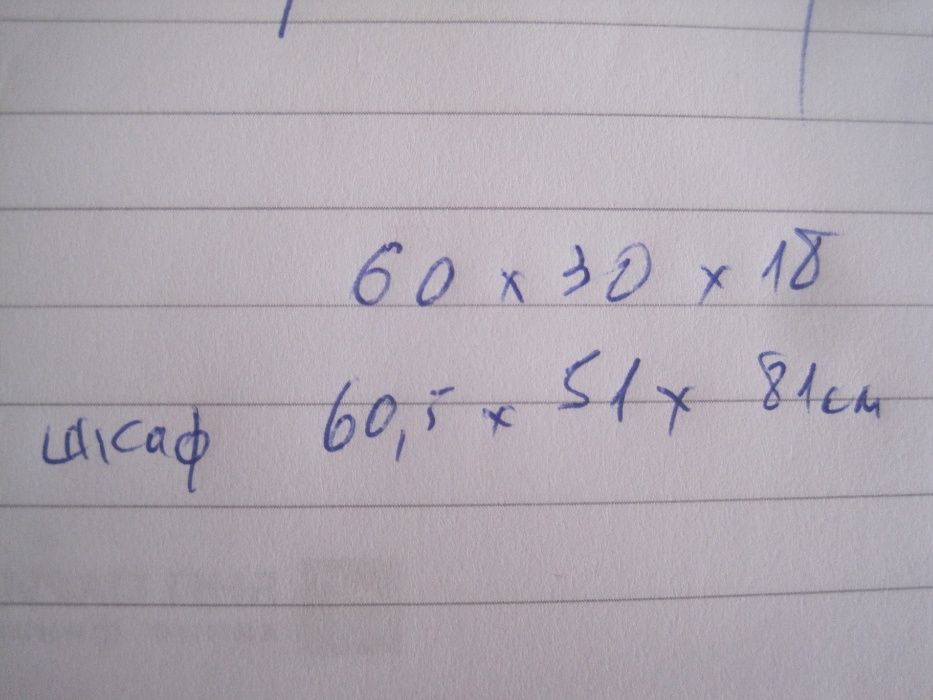 60 x 30 x 18
шкаф 60,5 x 51 x 81 см